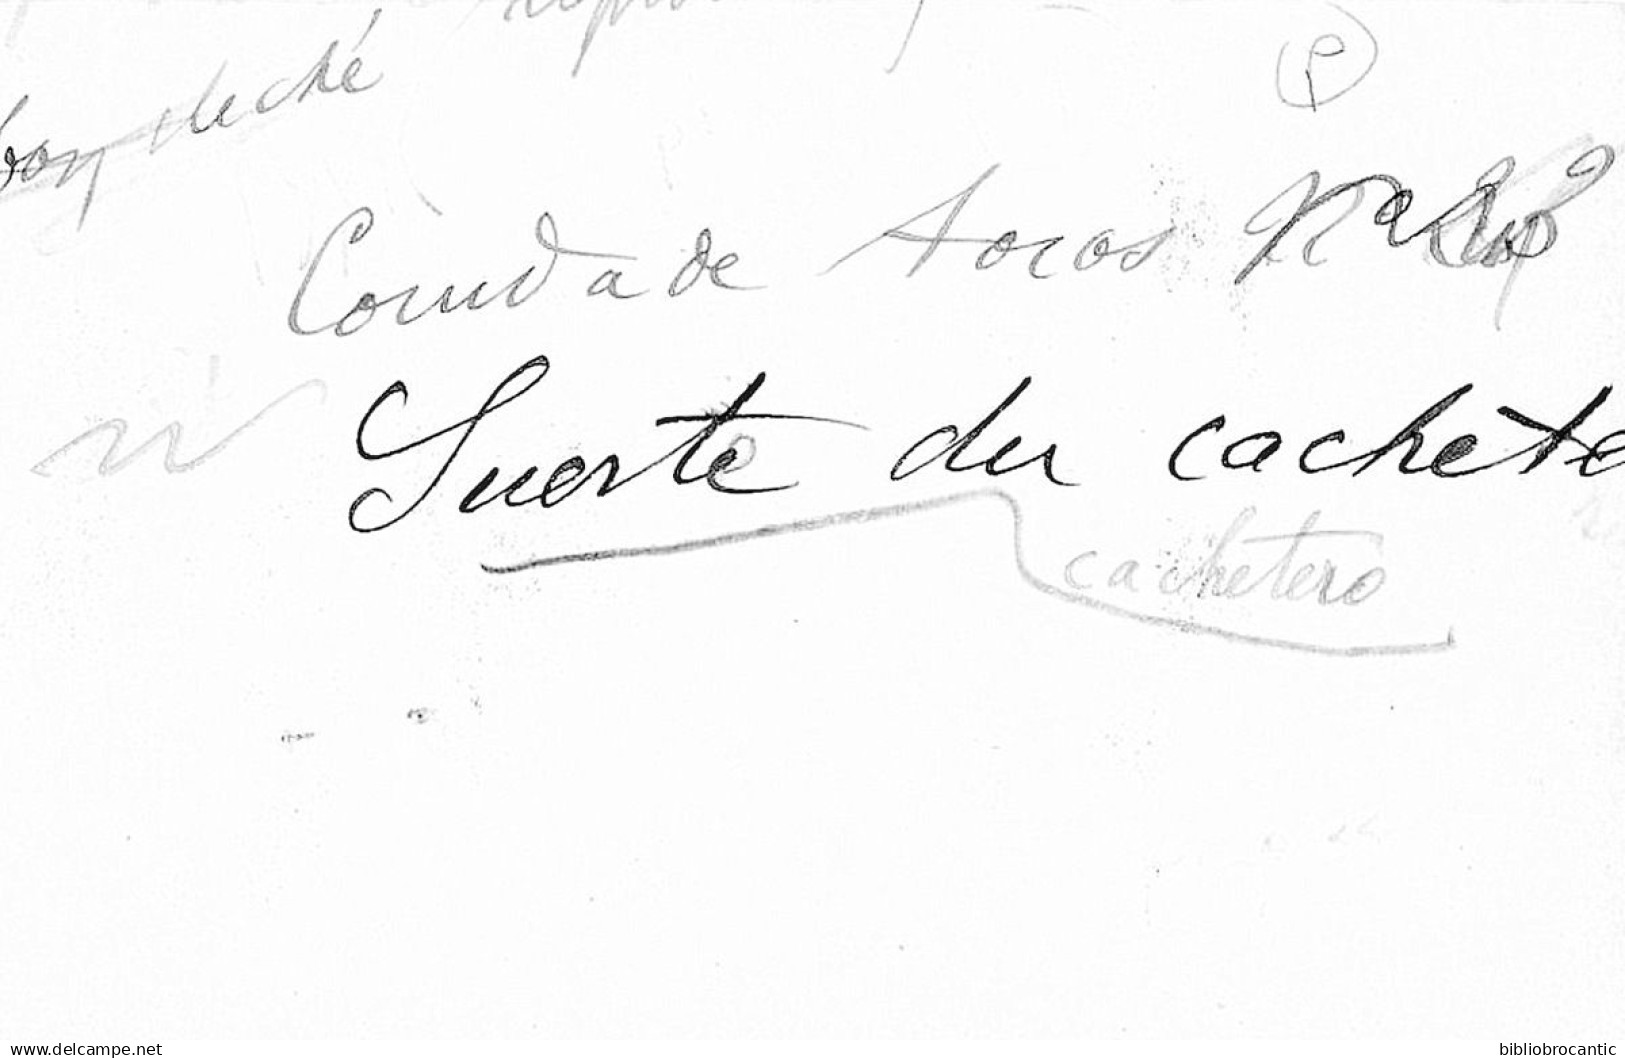 bon cliché
P
Corrida de toros Nº
Suerte du cachete
cachetero
www.delcampe.net
bibliobrocantic